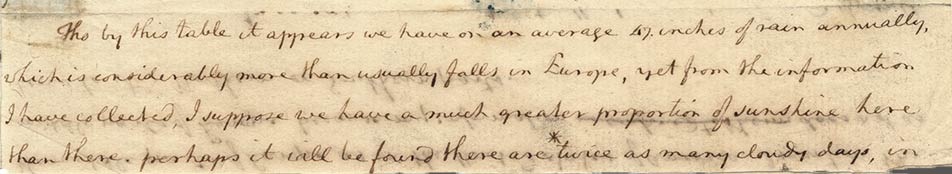 Tho by this table it appears we have on an average 47. inches of rain annually,
which is considerably more than usually falls in Europe, yet from the information
I have collected, I suppose we have a much greater proportion of sunshine here
than there. perhaps it will be found there are * twice as many cloudy days, in